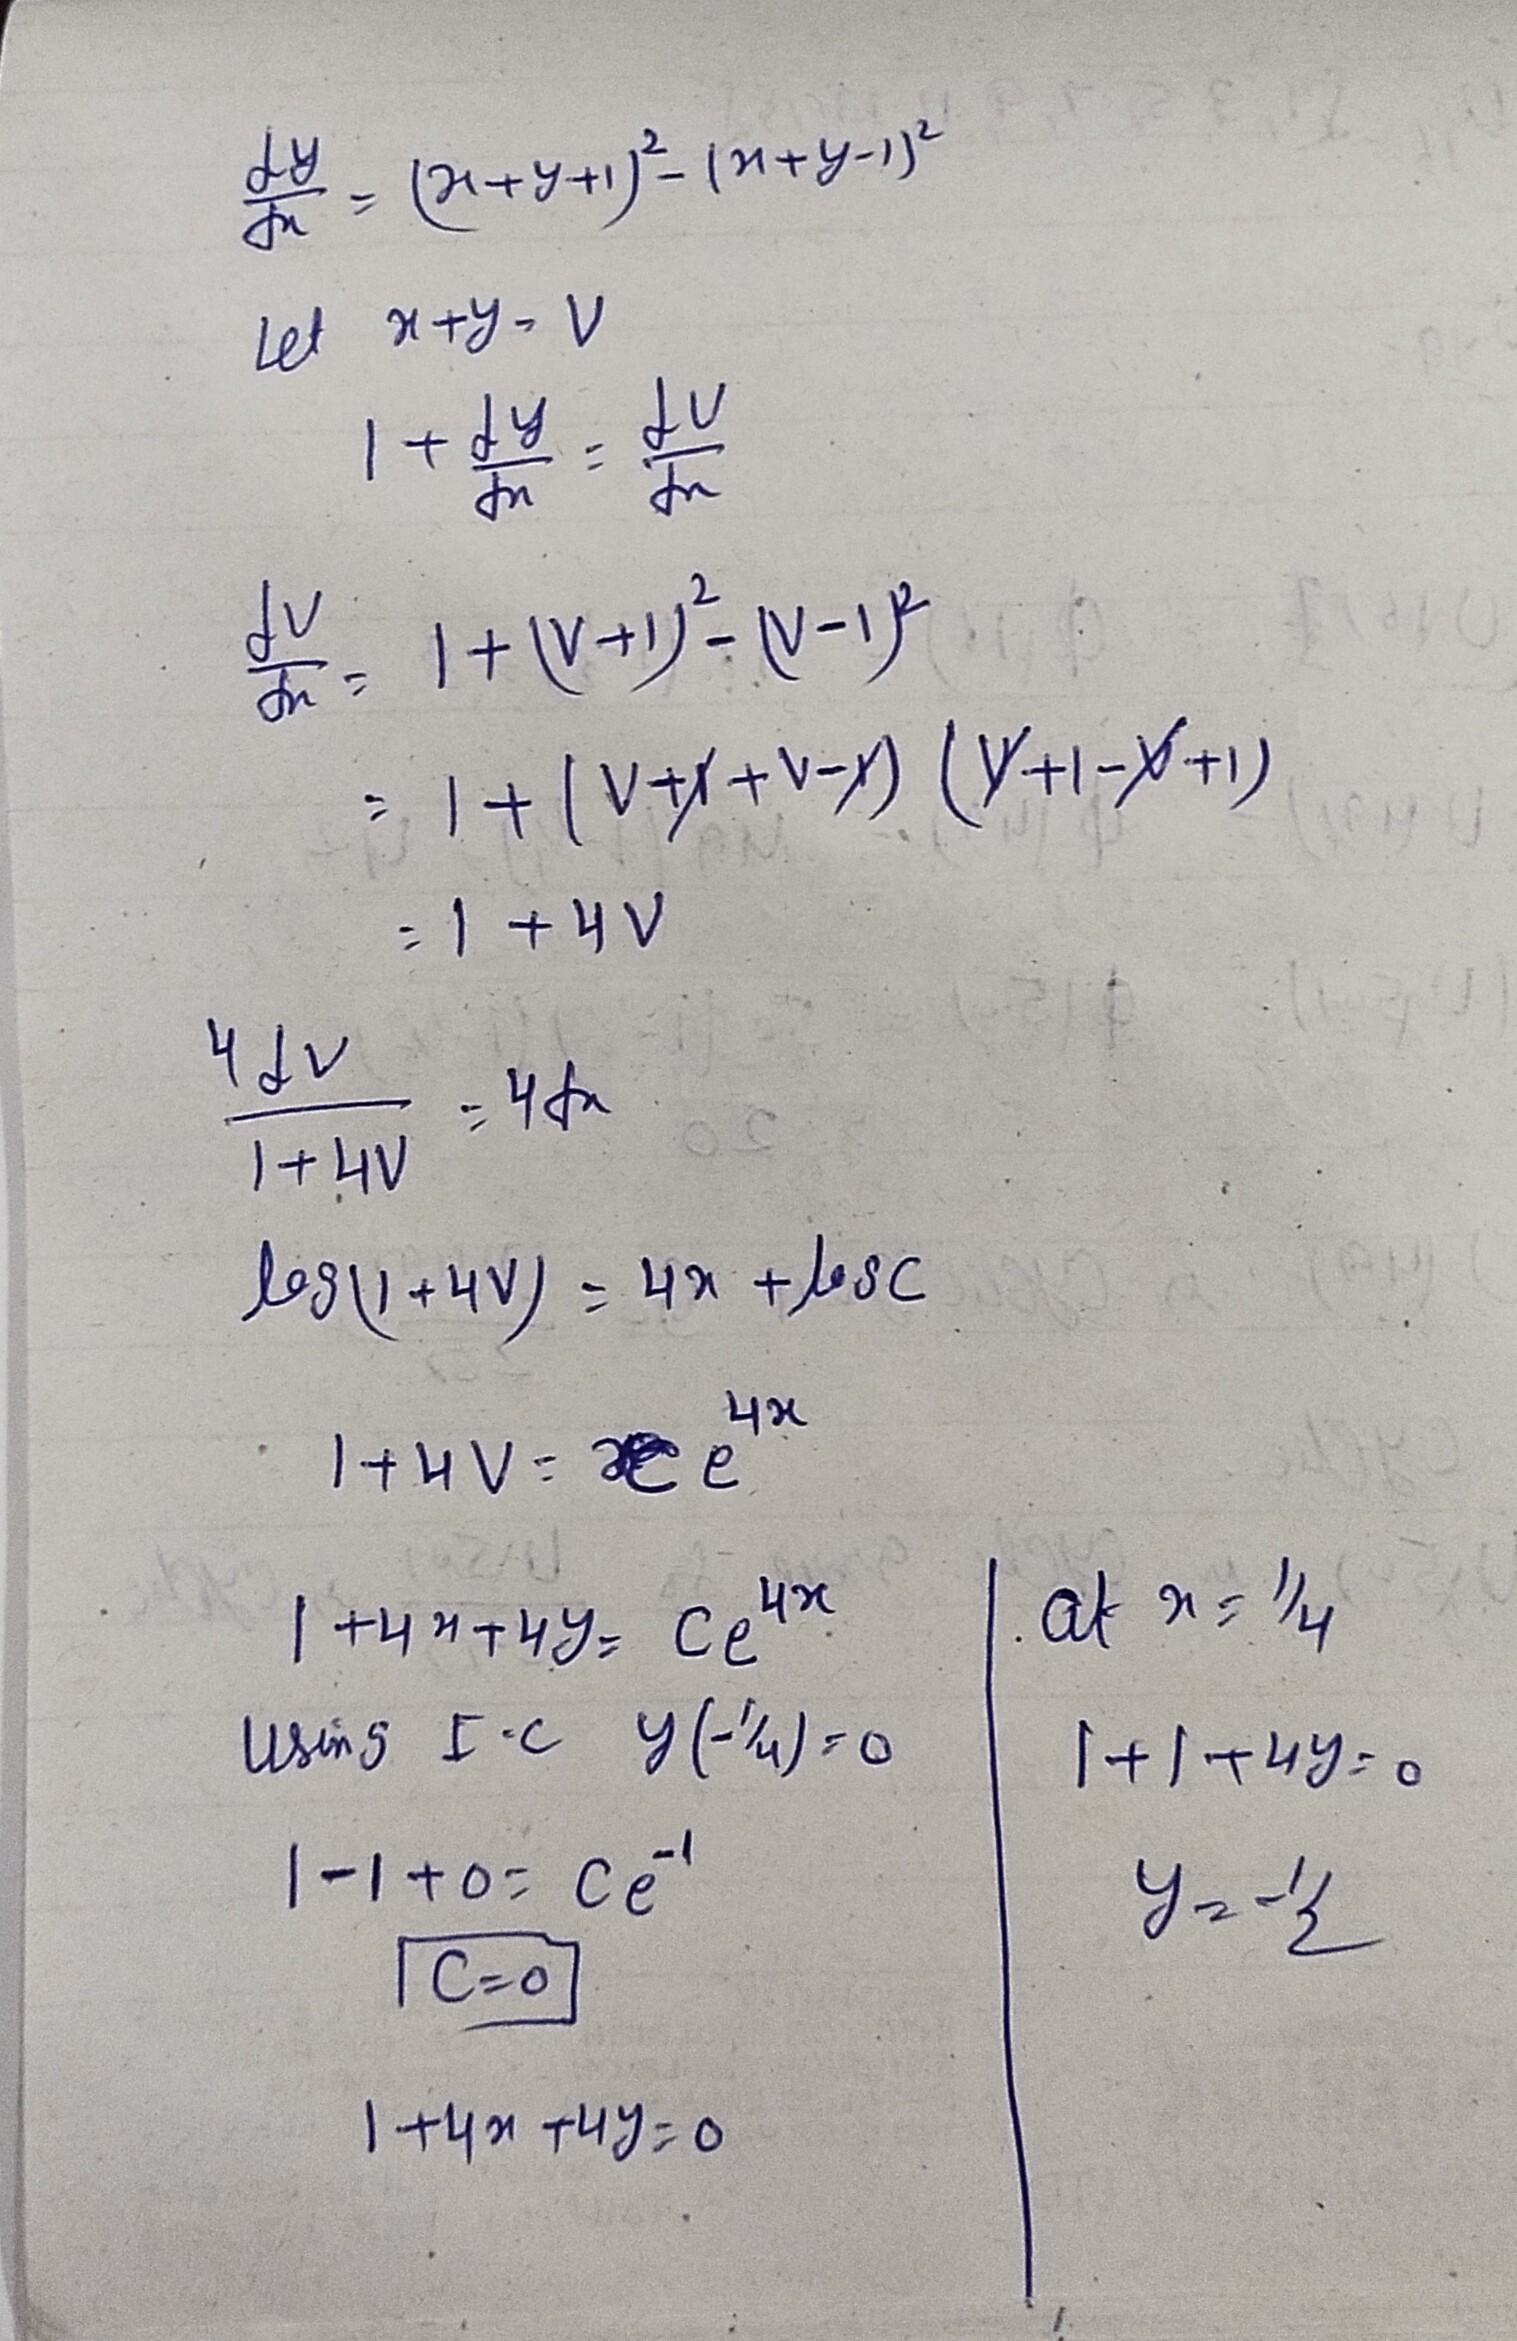 dy/dx = (x+y+1)² - (x+y-1)²
Let x+y = V
1 + dy/dx = dV/dx
dV/dx = 1 + (V+1)² - (V-1)²
= 1 + (V+1+V-1) (V+1-V+1)
= 1 + 4V
4dV/(1+4V) = 4dx
log(1+4V) = 4x + logC
1+4V = C e^4x
1+4x+4y = Ce^4x
Using I.C y(-1/4)=0
1-1+0 = Ce^-1
C=0
1+4x+4y=0
at x = 1/4
1+1+4y=0
y = -1/2